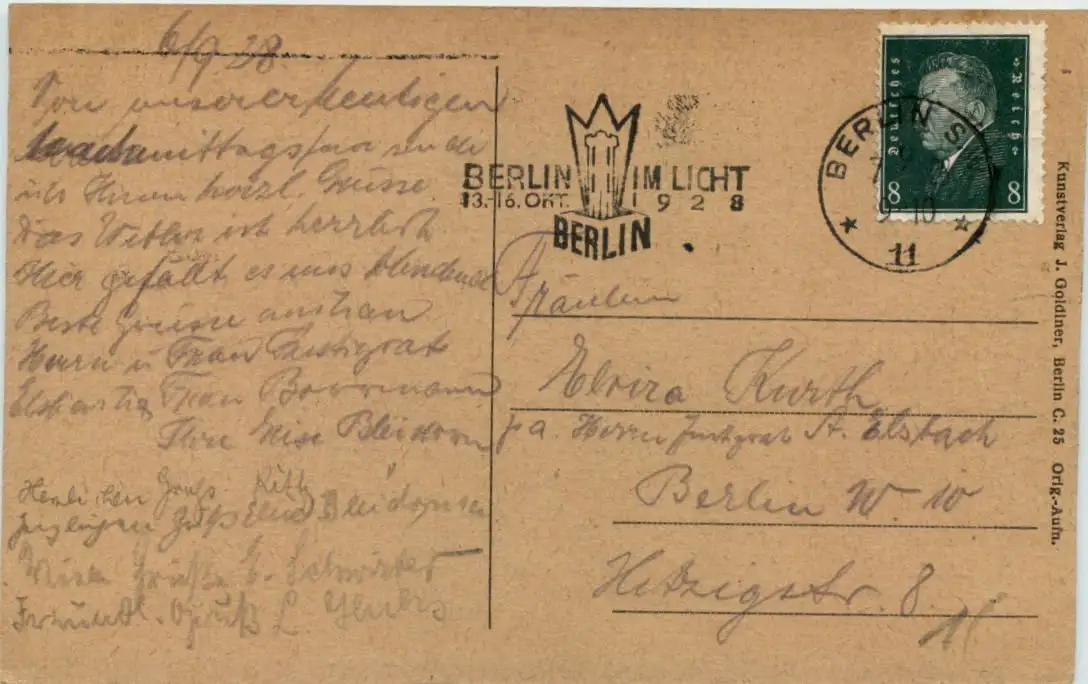 6/9 28.
Von unserer heutigen
nachmittagsfar sende
ich Ihnen herzl. Grüsse
Das Wetter ist herrlich
Hier gefällt es uns
Beste grüsse an
Herrn u Frau Justizrat
Frau Borrmann
Ihre Elise
Gruß
Gruß
Viele Grüße E.
Freundl. Gruß L.
BERLIN IM LICHT
13.-16. OKT. 1928
BERLIN
Deutsches Reich
8 8
BERLIN S
9-10
11
Fräulein
Elvira Kurth
p. a. Herrn Justizrat A. Elsbach
Berlin W 10
Hitzigstr. 8.
Kunstverlag J. Goldiner, Berlin C. 25 Orig.-Aufn.